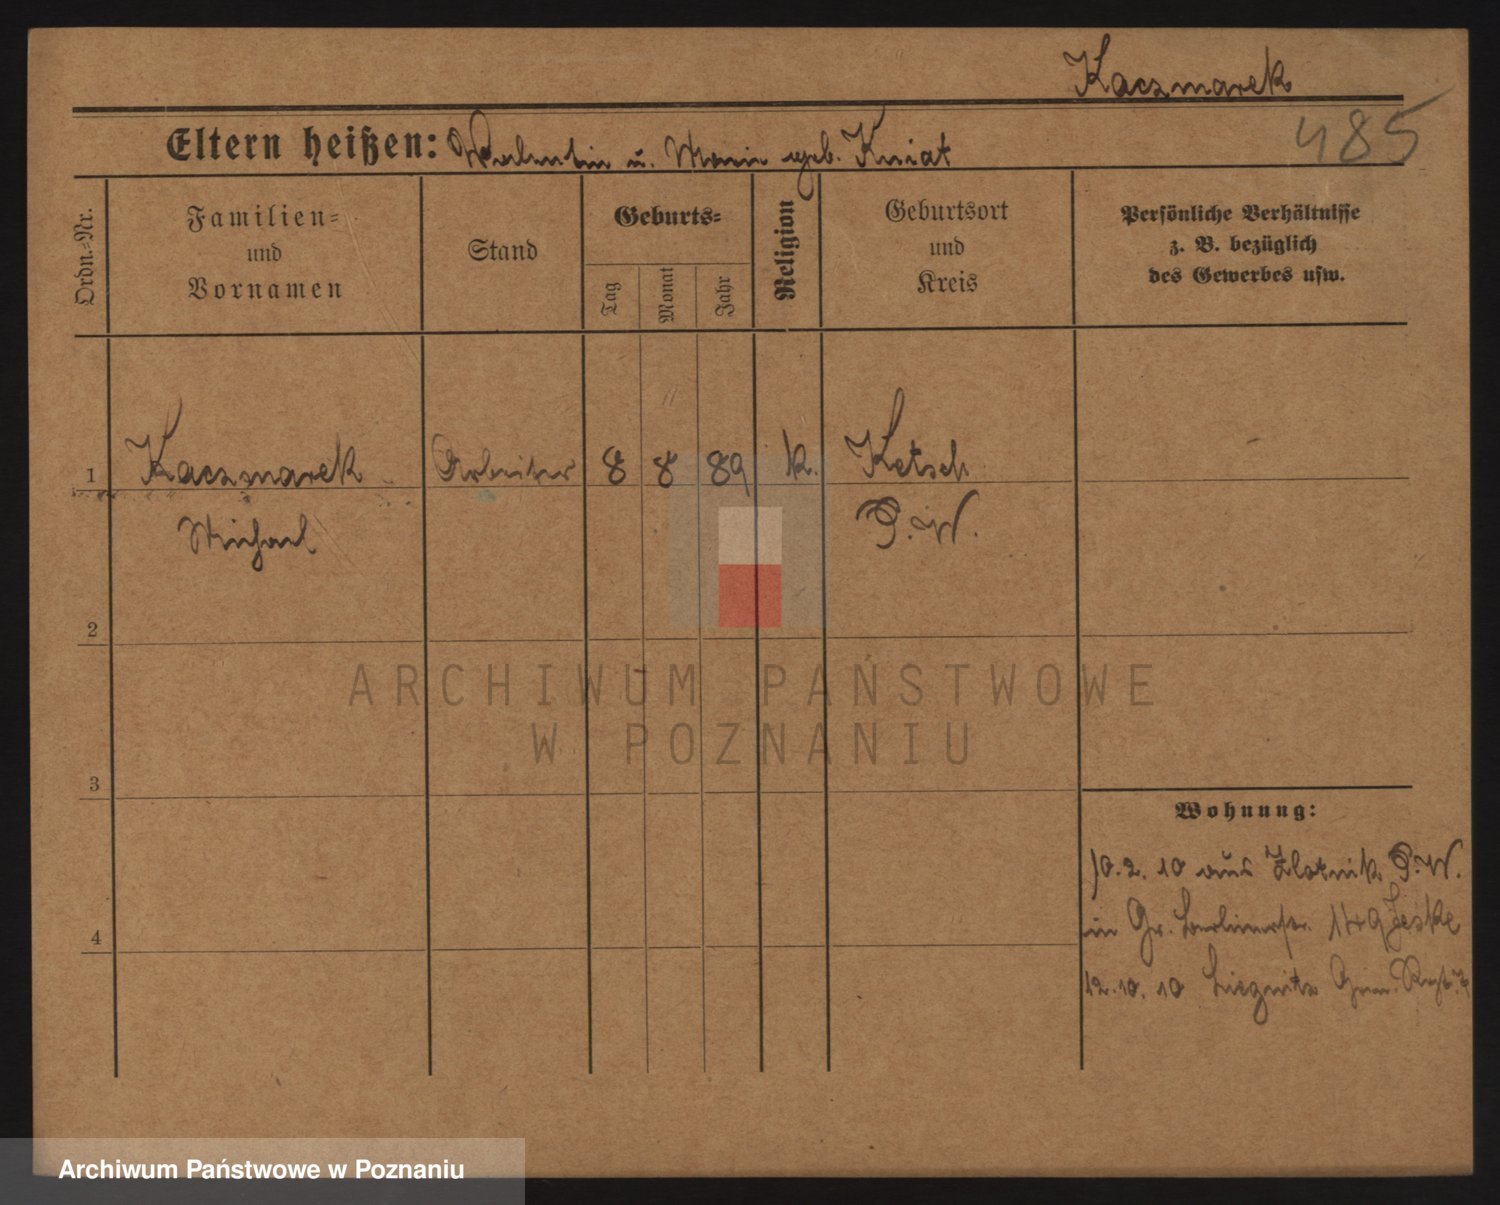 Kaczmarek
485
Eltern heißen: Valentin u. Marie geb. Kniat
Ordn.-Nr.
Familien-
und
Vornamen
Stand
Geburts-
Tag
Monat
Jahr
Religion
Geburtsort
und
Kreis
Persönliche Verhältnisse
z. B. bezüglich
des Gewerbes usw.
1 Kaczmarek Arbeiter 8 8 89 k. Ketsch
Michael P. W.
2
ARCHIWUM PAŃSTWOWE
W POZNANIU
3
Wohnung:
10.2.10 aus Zlotnik P. W.
in Gr. Berlinerstr. Jeske
4
12.10.10 Liegnitz Gren. Regt. 7
Archiwum Państwowe w Poznaniu